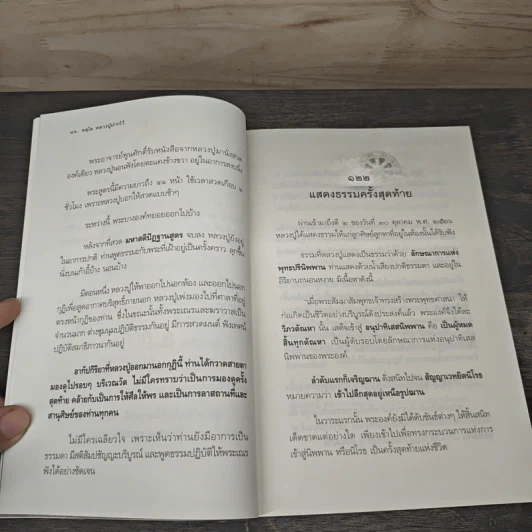 ๑๖ อตุโล หลวงปู่ฝากไว้
พระอาจารย์พูนศักดิ์รับหนังสือจากหลวงปู่มานั่งสวด
องค์เดียว หลวงปู่นอนฟังโดยตะแคงข้างขวา อยู่ในอาการสงบนิ่ง
พระสูตรนี้มีความยาวถึง ๔๑ หน้า ใช้เวลาสวดเกือบ ๒
ชั่วโมง เพราะหลวงปู่บอกให้สวดแบบช้าๆ
ระหว่างนี้ พระบางองค์ทยอยออกไปบ้าง
หลังจากที่สวด มหาสติปัฏฐานสูตร จบลง หลวงปู่ยังอยู่
ในอาการปกติ ท่านพูดธรรมะกับพระที่เฝ้าอยู่เป็นครั้งคราว ลุกขึ้น
นั่งบนเก้าอี้บ้าง นอนบ้าง
มีตอนหนึ่ง หลวงปู่ให้พาออกไปนอกห้อง และออกไปนอก
กุฏิเพื่อสูดอากาศบริสุทธิ์ภายนอก หลวงปู่เพ่งมองไปที่ศาลาที่อยู่
ตรงหน้ากุฏิของท่าน ซึ่งในขณะนั้นทั้งพระเณรและฆราวาสเป็น
จำนวนมาก ต่างชุมนุมปฏิบัติธรรมกันอยู่ มีการสวดมนต์ ฟังเทศน์
ปฏิบัติสมาธิภาวนากันอยู่
อากัปกิริยาที่หลวงปู่ออกมานอกกุฏินี้ ท่านได้กวาดสายตา
มองดูไปรอบๆ บริเวณวัด ไม่มีใครทราบว่าเป็นการมองดูครั้ง
สุดท้าย คล้ายกับเป็นการให้ศีลให้พร และเป็นการลาสถานที่และ
สานุศิษย์ของท่านทุกคน
ไม่มีใครเฉลียวใจ เพราะเห็นว่าท่านยังมีอาการเป็น
ธรรมดา มีสติสัมปชัญญะบริบูรณ์ และพูดธรรมปฏิบัติให้พระเณร
ฟังได้อย่างชัดเจน
๑๒๒
แสดงธรรมครั้งสุดท้าย
ผ่านเข้ามาถึงตี ๒ ของวันที่ ๓๐ ตุลาคม พ.ศ. ๒๕๒๖
หลวงปู่ได้แสดงธรรมให้แก่ลูกศิษย์ลูกหาที่อยู่ในห้องนั้นได้รับฟัง
ธรรมที่หลวงปู่แสดงเป็นธรรมว่าด้วย ลักษณาการแห่ง
พุทธปรินิพพาน ท่านแสดงด้วยน้ำเสียงปกติธรรมดา และอยู่ใน
อิริยาบถนอนหงาย มีเนื้อหาดังนี้
เมื่อพระสัมมาสัมพุทธเจ้าทรงสร้างพระพุทธศาสนา ให้
ก่อเกิดเป็นชีวิตอย่างบริบูรณ์ดังประสงค์แล้ว พระองค์จึงได้ละ
วิภวตัณหา นั้น เสด็จเข้าสู่ อนุปาทิเสสนิพพาน คือ เป็นผู้หมด
สิ้นทุกตัณหา เป็นผู้ดับรอบโดยลักษณาการแห่งอนุปาทิเสส
นิพพานของพระองค์
ลำดับแรกก็เจริญฌาน ดิ่งสนิทไปจน สัญญาเวทยิตนิโรธ
หมายความว่า เข้าไปลึกสุดอยู่เหนือรูปฌาน
ในวาระแรกนั้น พระองค์ยังมิได้ดับขันธ์ต่างๆ ให้สิ้นสนิท
เด็ดขาดแต่อย่างใด เพียงเข้าไปเพื่อทรงกระบวนการแห่งการ
เข้าสู่นิพพาน หรือนิโรธ เป็นครั้งสุดท้ายแห่งชีวิต